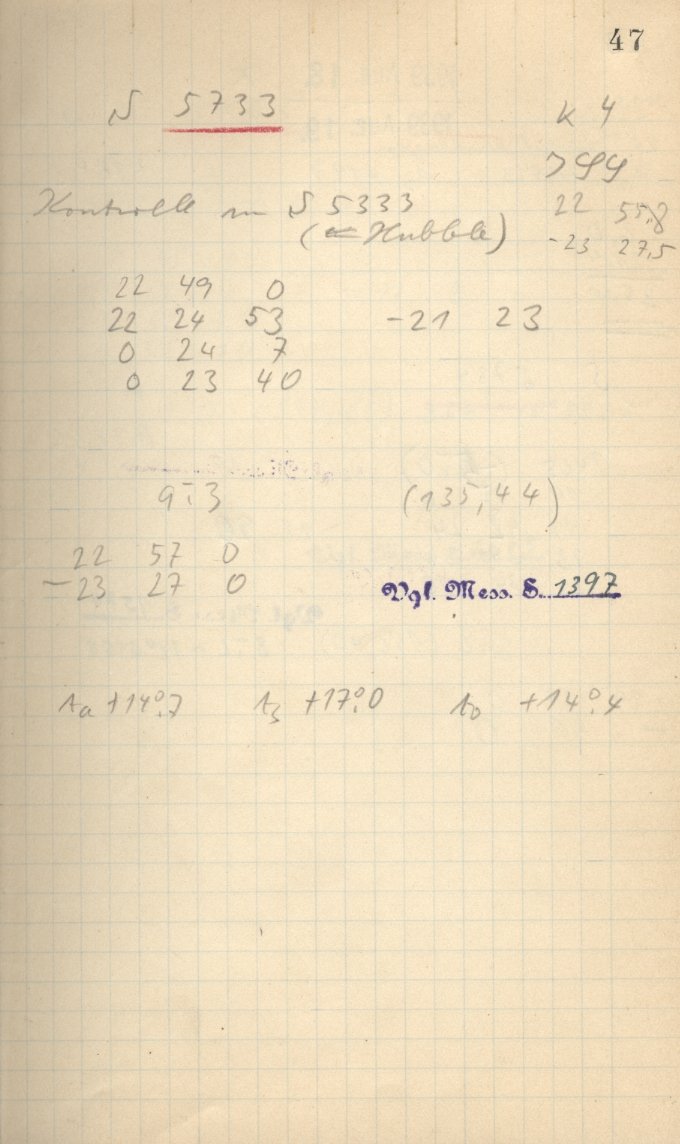 47
S 5733
K 4
799
Kontrolle zu S 5333
22 55,8
(= Hubble)
-23 27,5
22 49 0
22 24 53 -21 23
0 24 7
0 23 40
9:3 (135,44)
22 57 0
-23 27 0
Vgl. Mess. S. 1397
ta +14°.7 ts +17°.0 to +14°.4